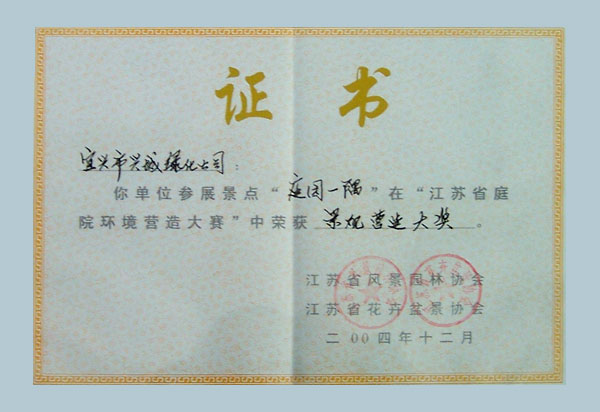 证书
宜兴市兴城绿化公司：
你单位参展景点“庭园一隅”在“江苏省庭
院环境营造大赛”中荣获 景观营造大奖 。
江苏省风景园林协会
江苏省花卉盆景协会
二00四年十二月